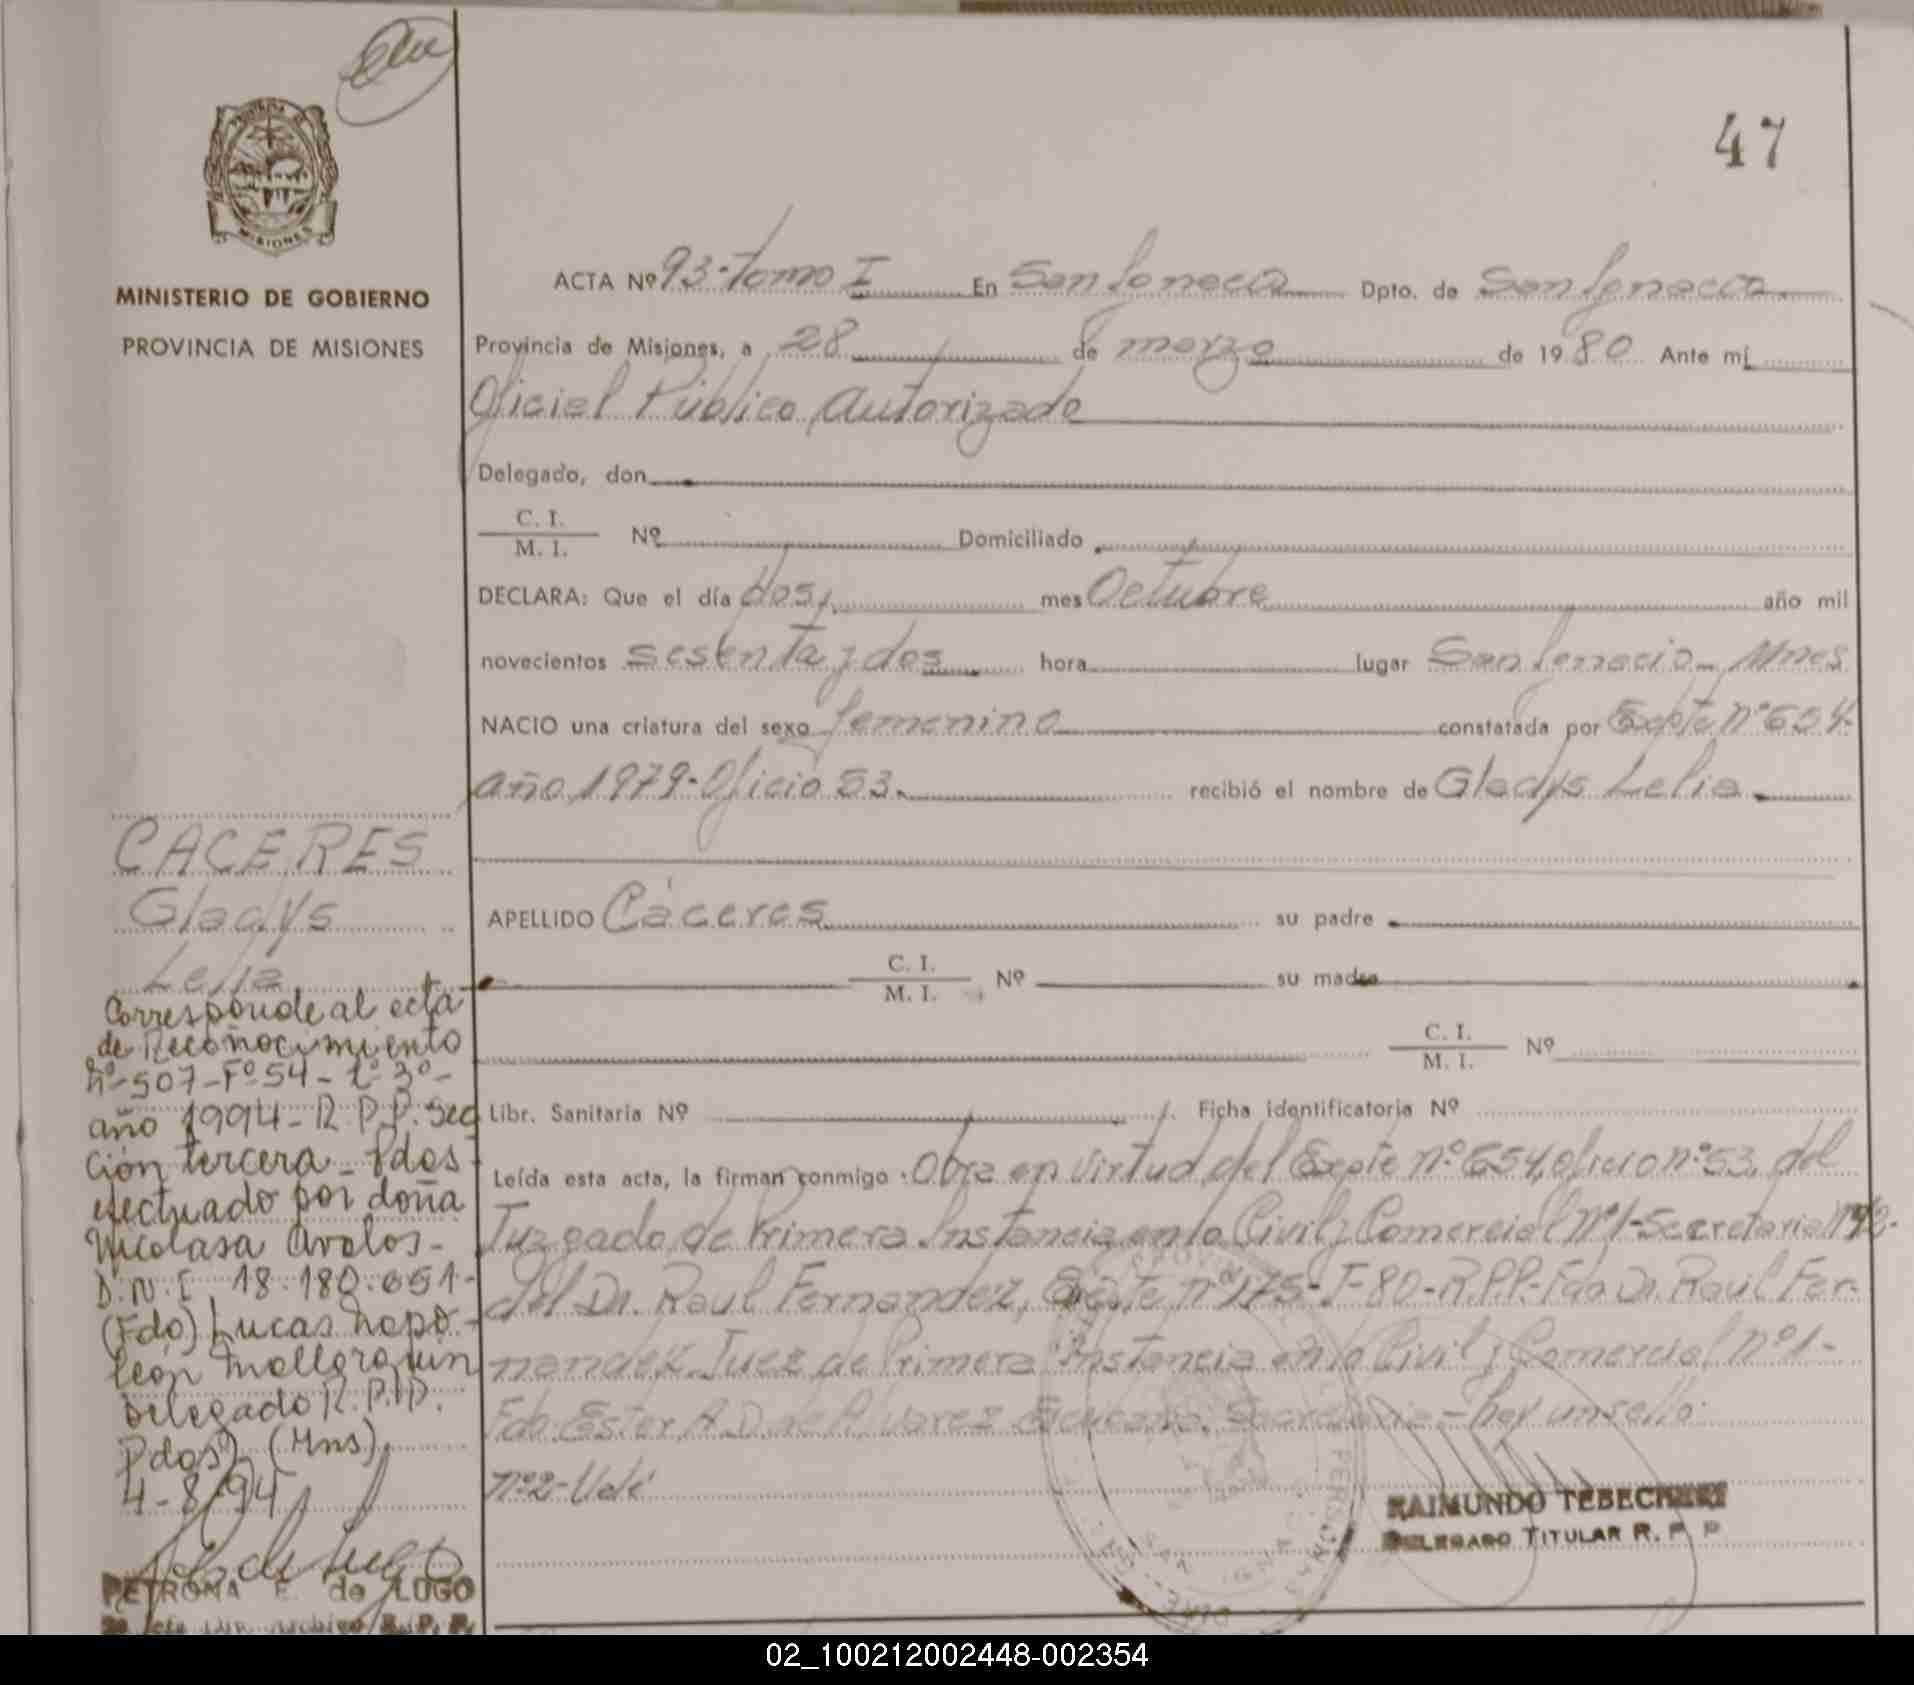 47
PROVINCIA
MISIONES
MINISTERIO DE GOBIERNO
PROVINCIA DE MISIONES
ACTA Nº 93-Tomo I En San Ignacio Dpto. de San Ignacio
Provincia de Misiones, a 28 de marzo de 1980 Ante mí
Oficial Público Autorizado
Delegado, don
C. I.
M. I. Nº Domiciliado
DECLARA: Que el día dos, mes Octubre año mil
novecientos sesenta y dos hora lugar San Ignacio - Mnes
NACIO una criatura del sexo femenino constatada por Expte Nº 654-
año 1979-Oficio 53. recibió el nombre de Gladys Lelia.
APELLIDO Cáceres su padre
C. I.
M. I. Nº su madre
C. I.
M. I. Nº
Libr. Sanitaria Nº Ficha identificatoria Nº
Leída esta acta, la firman conmigo: Obra en virtud del Expte nº 654, oficio nº 53, del
Juzgado de Primera Instancia en lo Civil y Comercial Nº1-Secretaria Nº
del Dr. Raul Fernandez, Expte nº 175-F-80-R.P.P.-Fdo Dr. Raúl Fer-
nandez Juez de Primera Instancia en lo Civil y Comercial Nº1-
Fdo. Ester A. D. de Alvarez Secretaria - hay un sello
nº2-Vale
RAIMUNDO TEBECHERI
DELEGADO TITULAR R. P. P.
CACERES
Gladys
Lelia
Corresponde al acta
de Reconocimiento
Nº-507-Fº54-Tº3º-
año 1994-R.P.P. Sec
ción tercera - Pdos
efectuado por doña
Nicolasa Avalos-
D.N.I 18.180.651-
(Fdo) Lucas Napo-
león Mallorquin
Delegado R.P.P.
Pdos) (Mns).
4-8-94
PETRONA E. de LUGO
R. P. P.
02_100212002448-002354